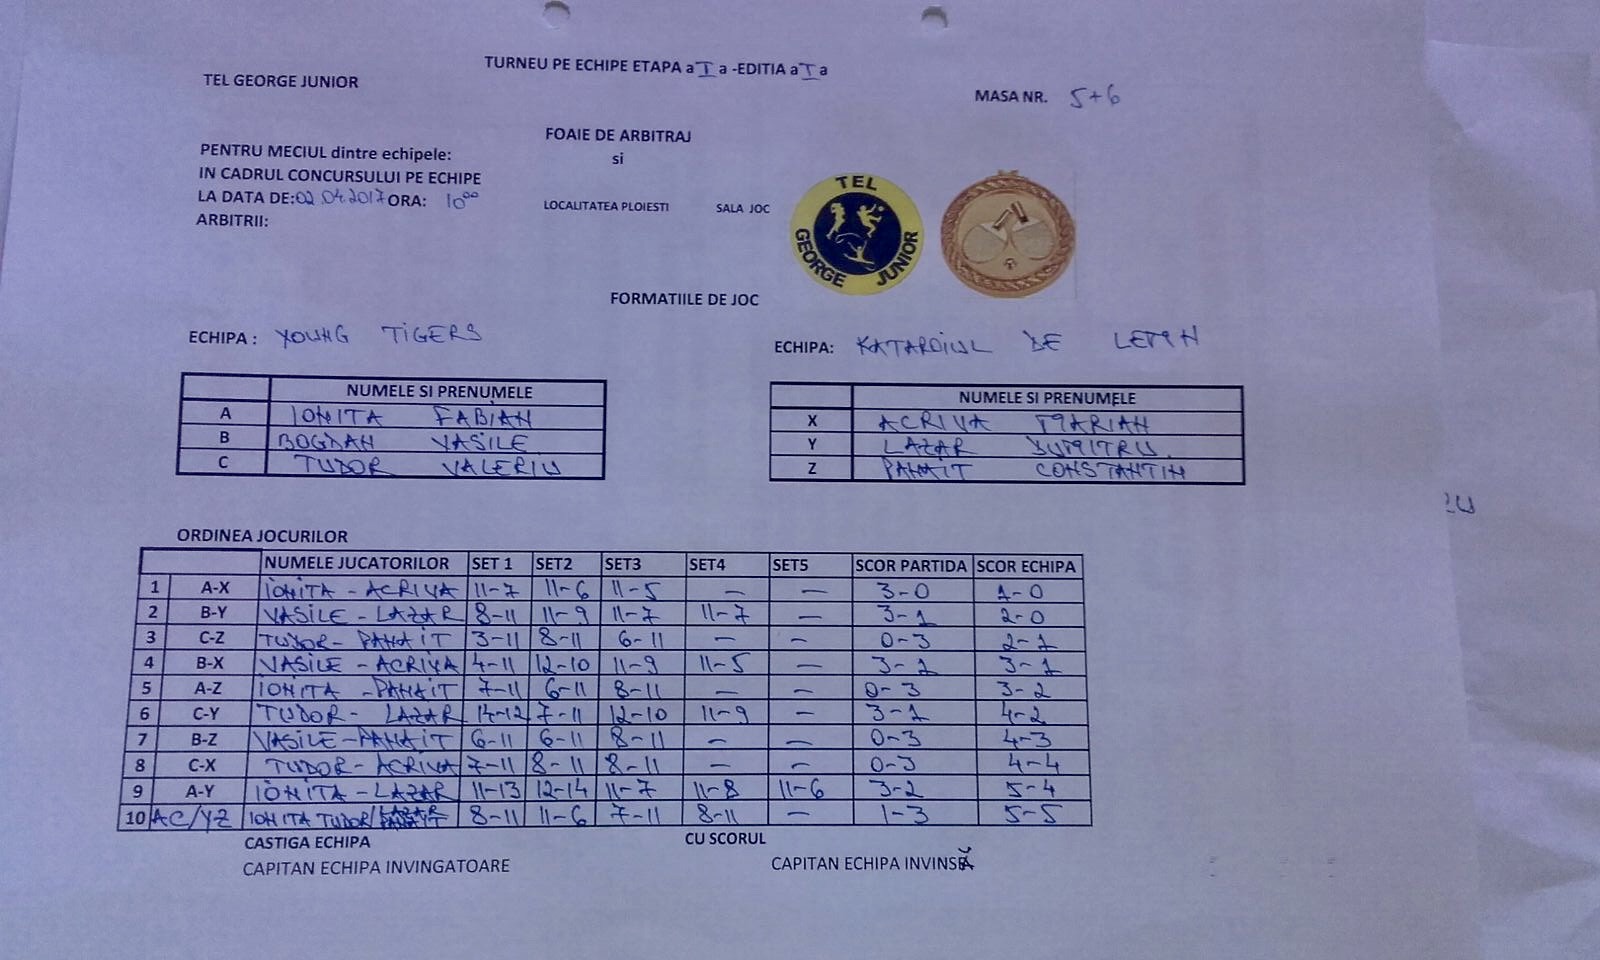 TURNEU PE ECHIPE ETAPA a I a -EDITIA a I a
TEL GEORGE JUNIOR
MASA NR. 5+6
FOAIE DE ARBITRAJ
PENTRU MECIUL dintre echipele:
si
IN CADRUL CONCURSULUI PE ECHIPE
LA DATA DE:02.04.2017 ORA: 10⁰⁰
LOCALITATEA PLOIESTI SALA JOC
ARBITRII:
TEL GEORGE JUNIOR
FORMATIILE DE JOC
ECHIPA : YOUNG TIGERS
NUMELE SI PRENUMELE
A IONITA FABIAN
B BOGDAN VASILE
C TUDOR VALERIU
ECHIPA: KATARDIUL DE LEMN
NUMELE SI PRENUMELE
X ACRIVA MARIAN
Y LAZAR DUMITRU.
Z PANAIT CONSTANTIN
ORDINEA JOCURILOR
NUMELE JUCATORILOR SET 1 SET2 SET3 SET4 SET5 SCOR PARTIDA SCOR ECHIPA
1 A-X IONITA - ACRIVA 11-7 11-6 11-5 - - 3-0 1-0
2 B-Y VASILE - LAZAR 8-11 11-9 11-7 11-7 - 3-1 2-0
3 C-Z TUDOR - PANAIT 3-11 8-11 6-11 - - 0-3 2-1
4 B-X VASILE - ACRIVA 4-11 12-10 11-9 11-5 - 3-1 3-1
5 A-Z IONITA - PANAIT 7-11 6-11 8-11 - - 0-3 3-2
6 C-Y TUDOR - LAZAR 14-12 7-11 12-10 11-9 - 3-1 4-2
7 B-Z VASILE - PANAIT 6-11 6-11 8-11 - - 0-3 4-3
8 C-X TUDOR - ACRIVA 7-11 8-11 8-11 - - 0-3 4-4
9 A-Y IONITA - LAZAR 11-13 12-14 11-7 11-8 11-6 3-2 5-4
10 AC/YZ IONITA TUDOR/LAZAR PANAIT 8-11 11-6 7-11 8-11 - 1-3 5-5
CASTIGA ECHIPA CU SCORUL
CAPITAN ECHIPA INVINGATOARE CAPITAN ECHIPA INVINSĂ